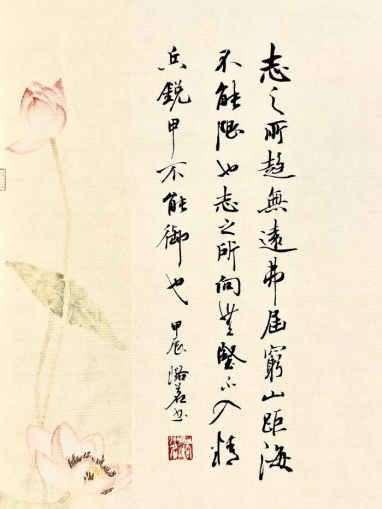 志之所趋無遠弗届窮山距海
不能限也志之所向無堅不入精
兵鋭甲不能御也
甲辰 潞若书